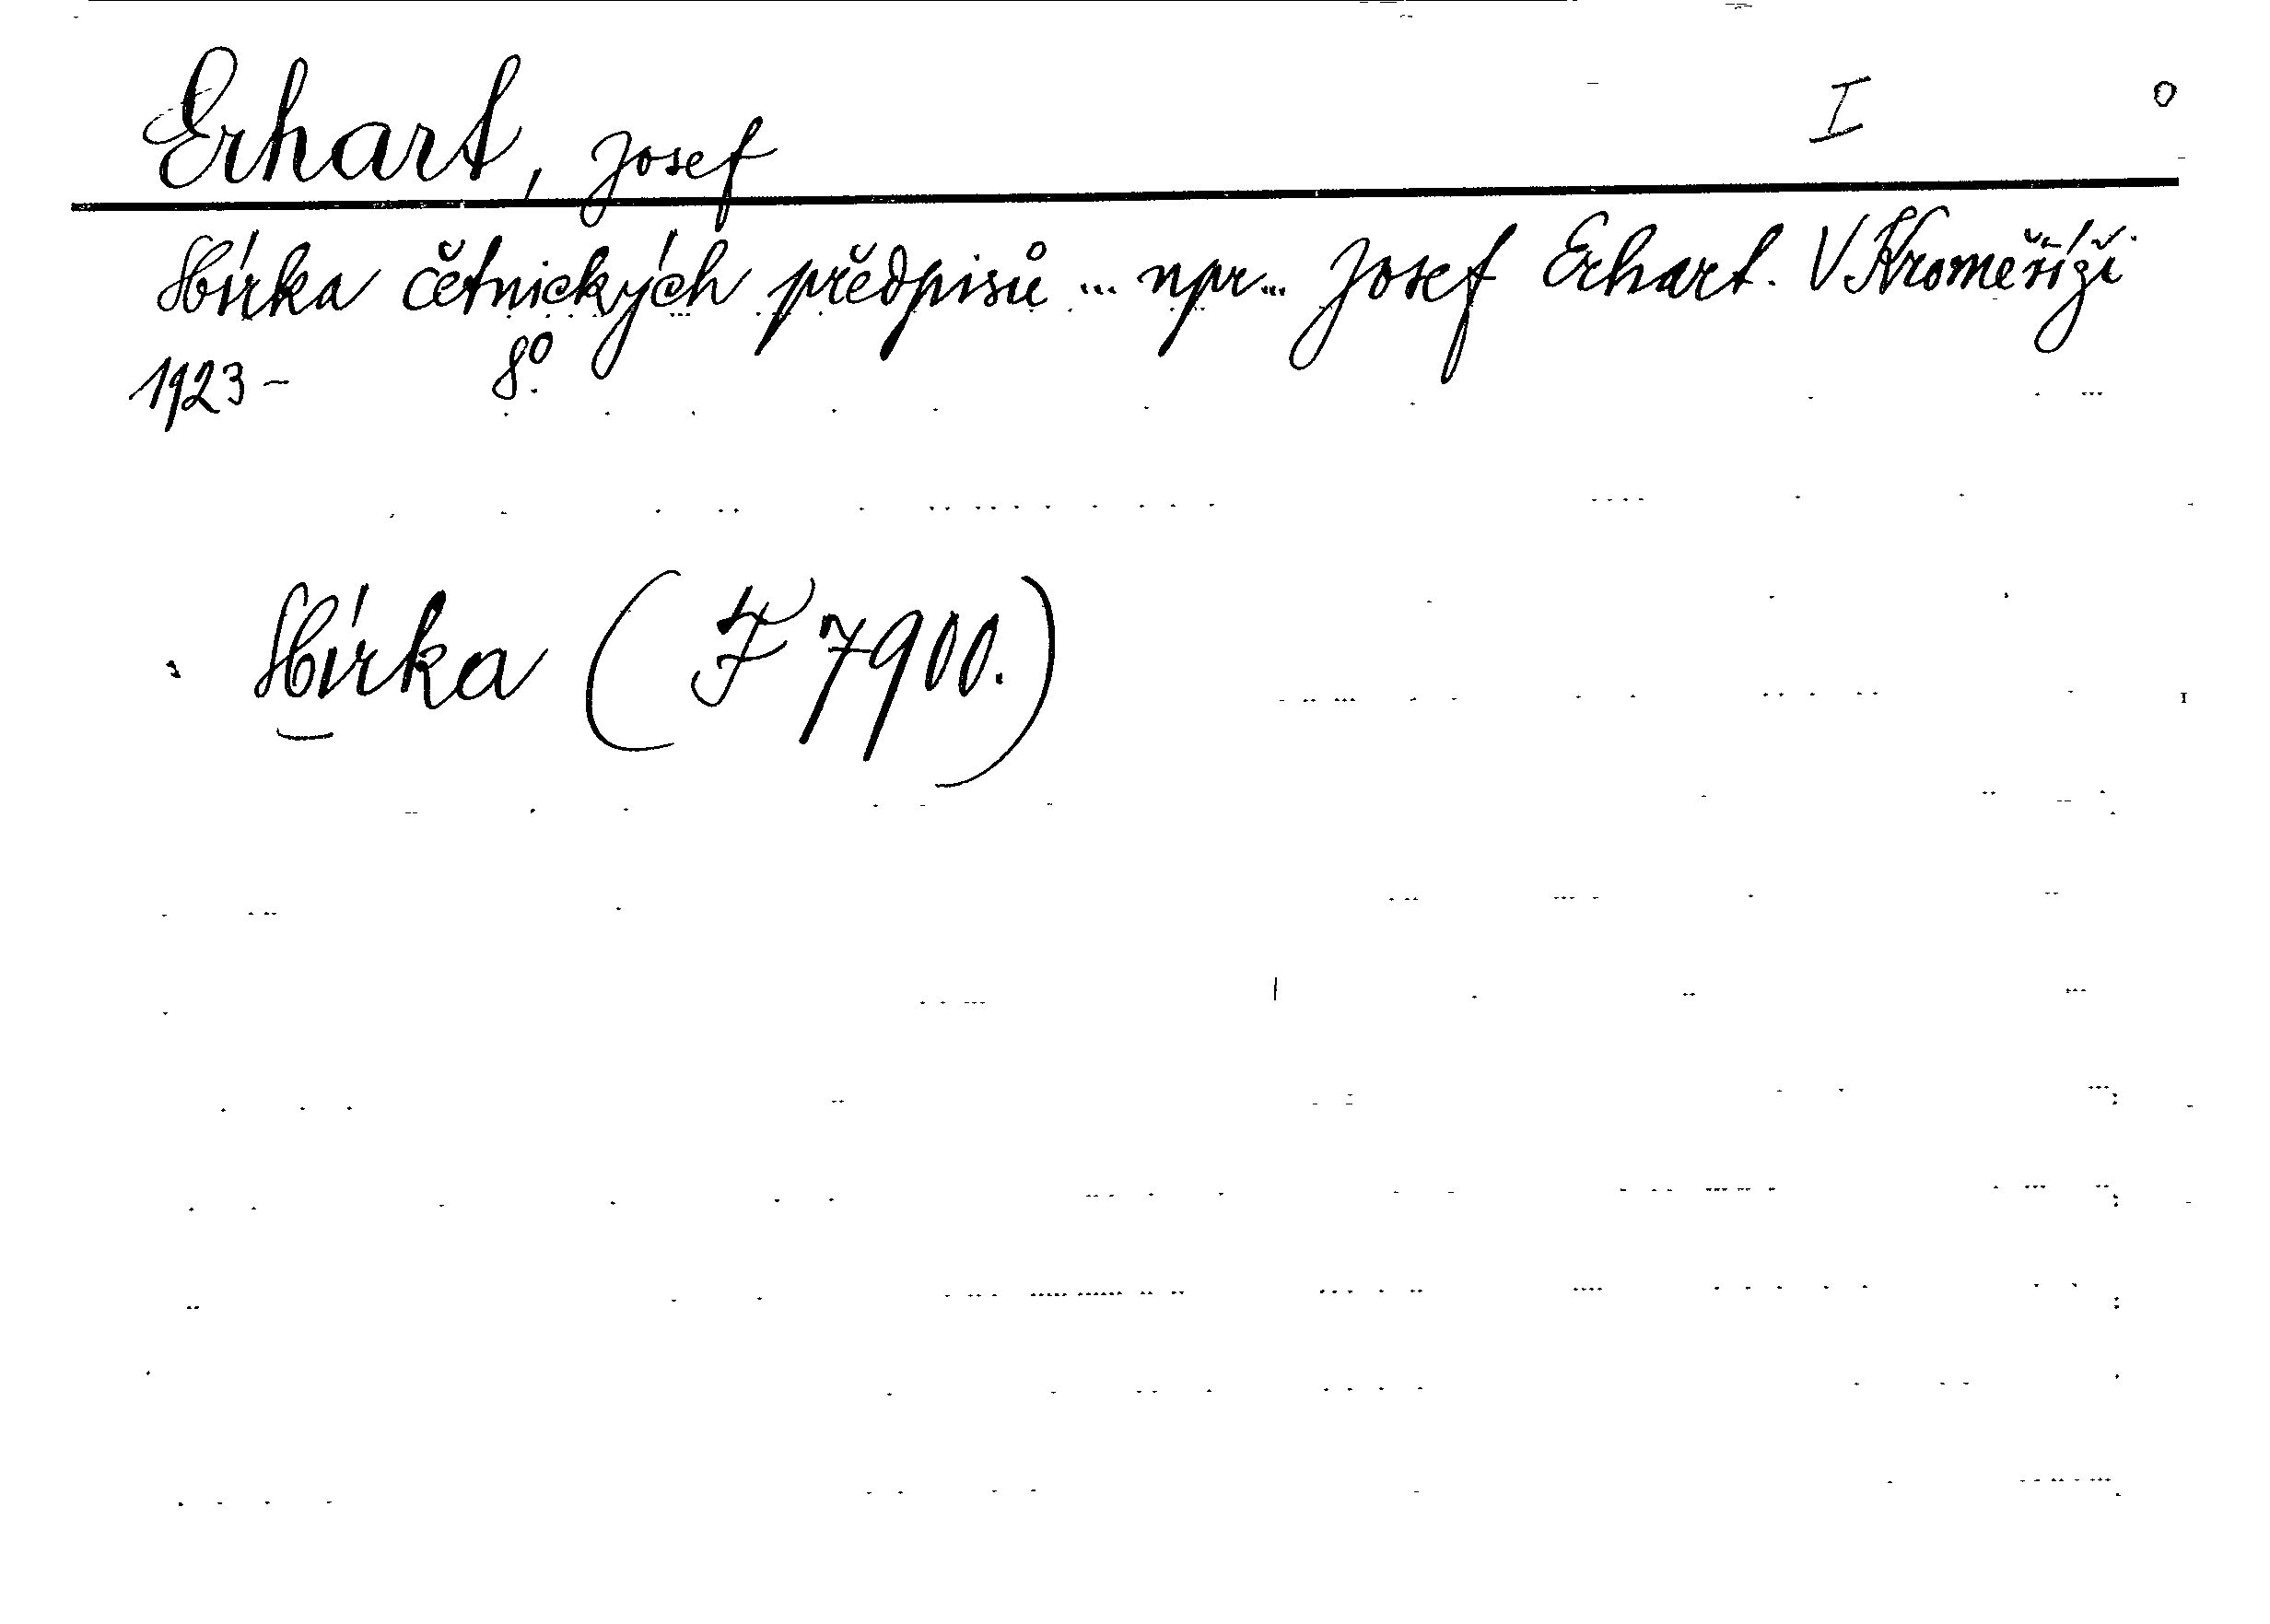 Erhart, Josef I
Sbírka četnických předpisů ... upr... Josef Erhart. V Kroměříži
1923 - 8°.
Sbírka (F 7900.)